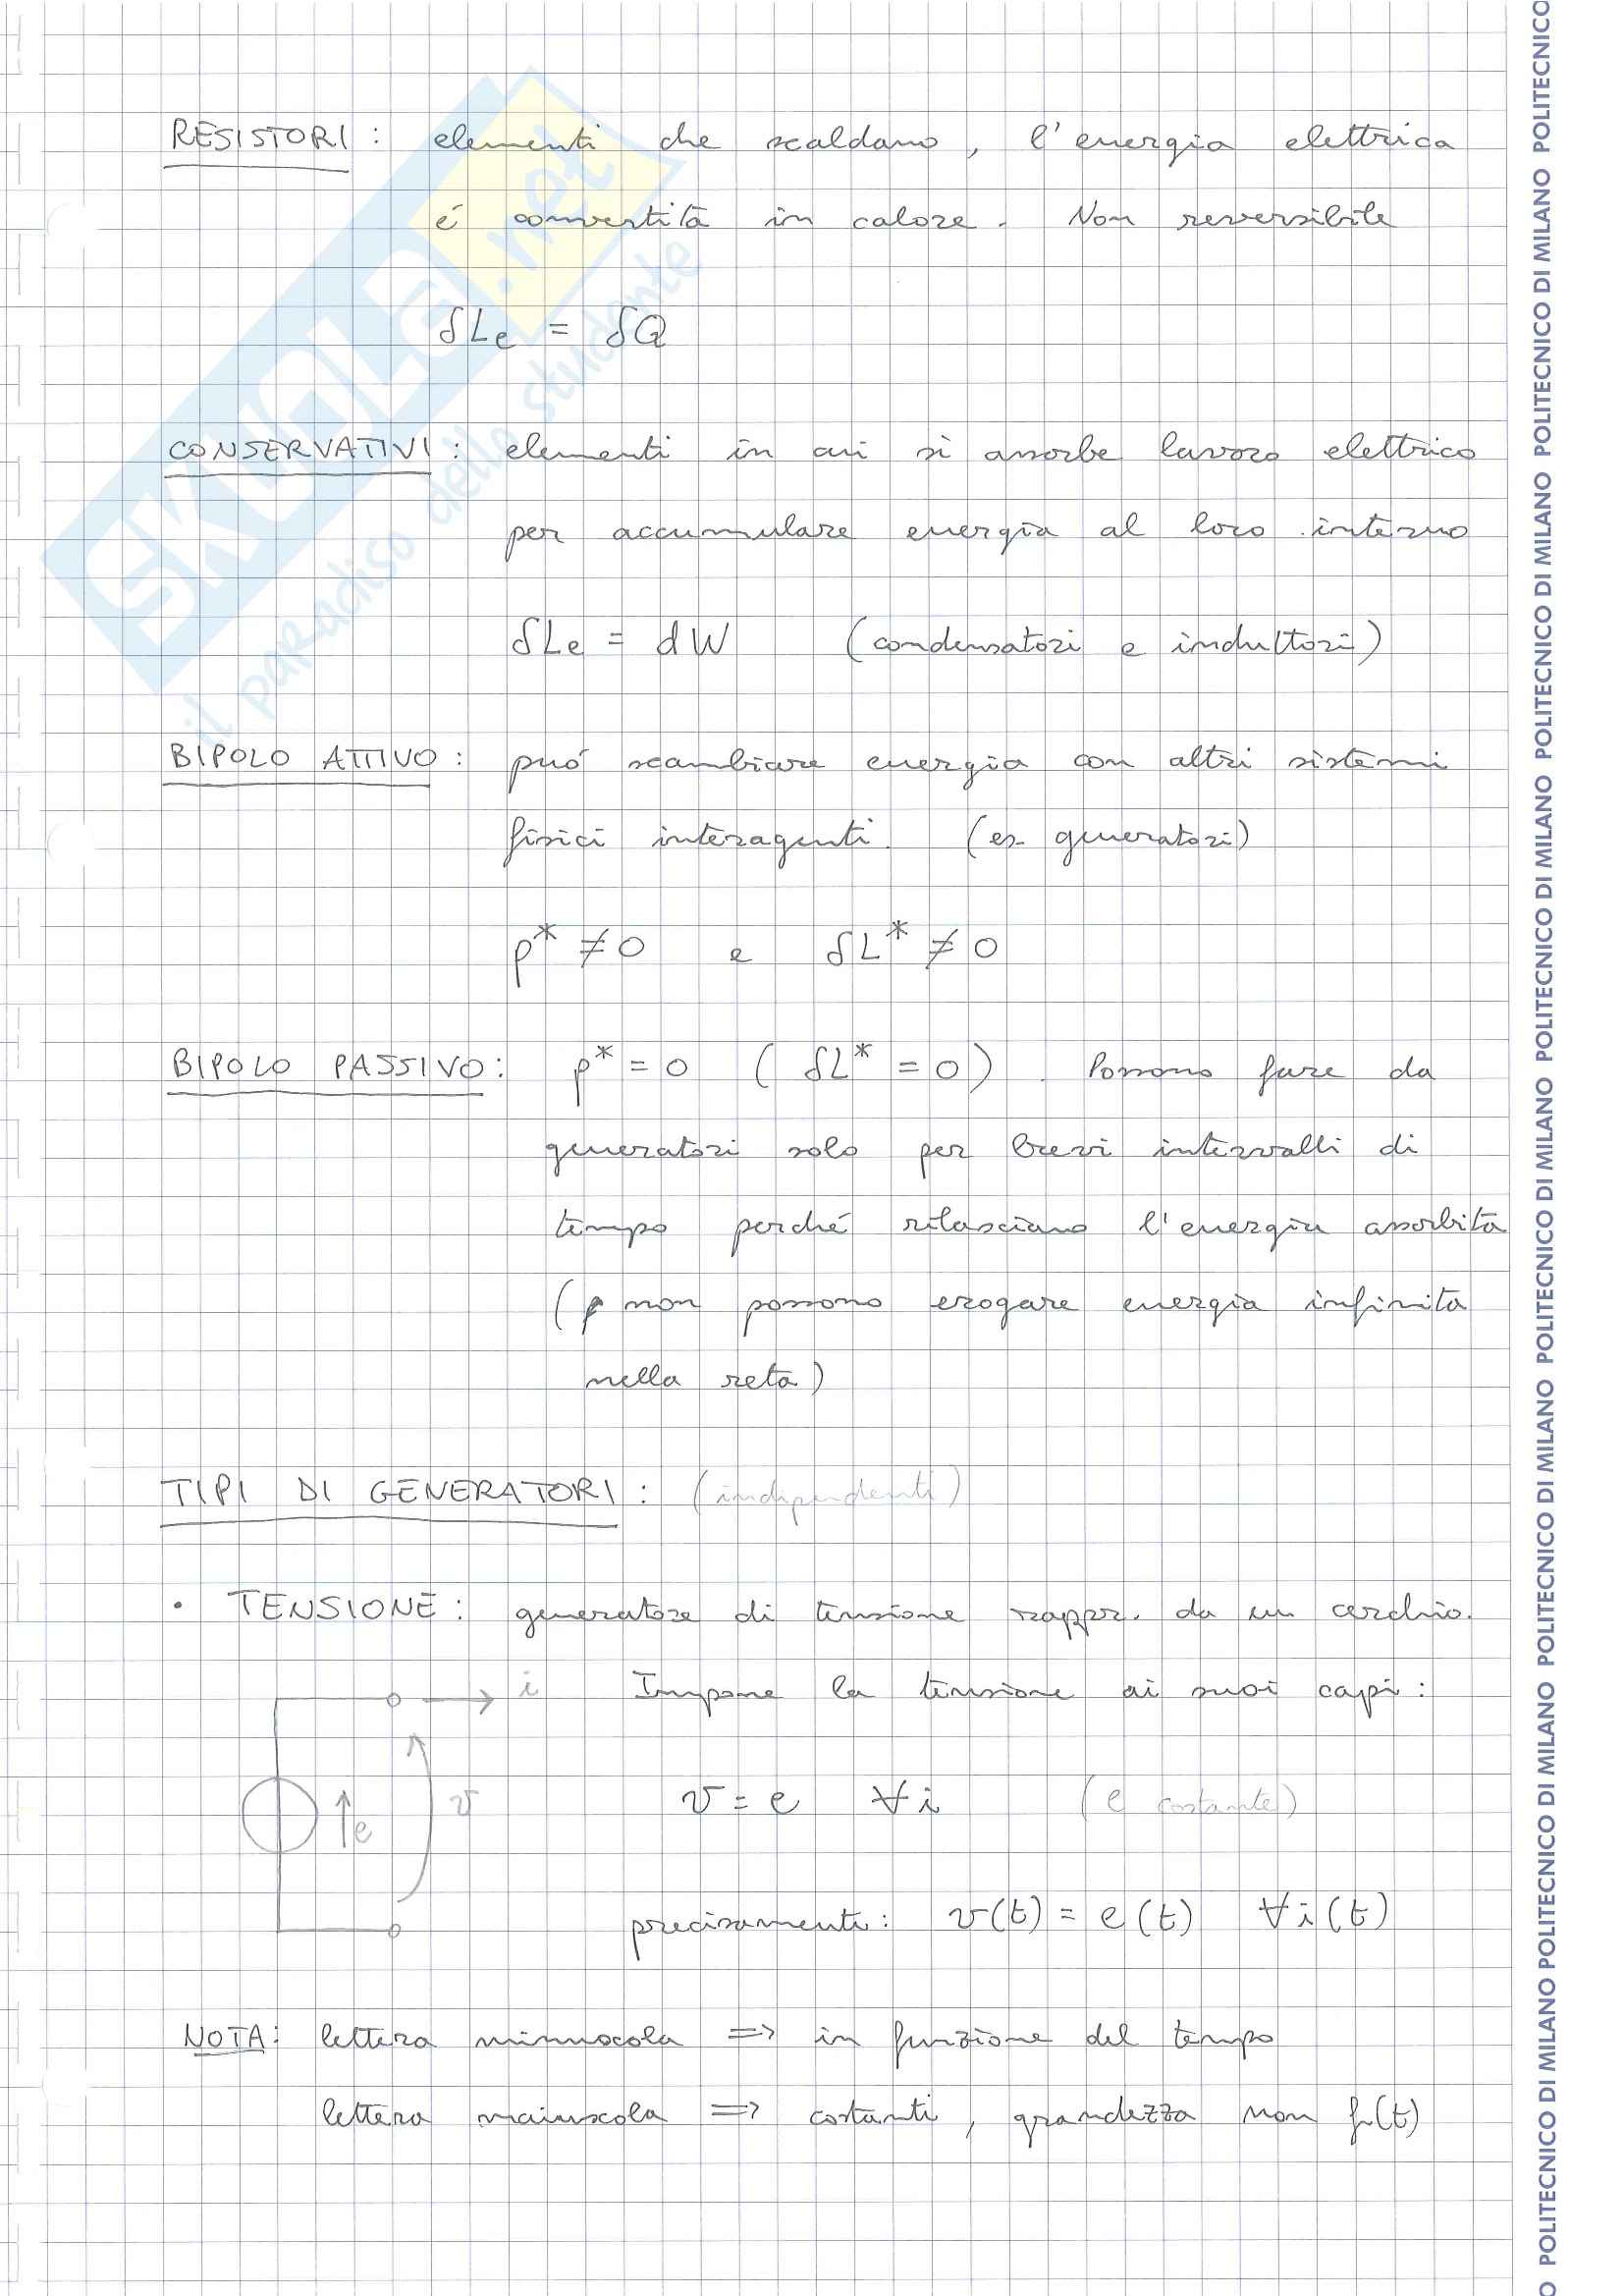 RESISTORI : elementi che scaldano, l'energia elettrica
é convertita in calore. Non reversibile
δLe = δQ
CONSERVATIVI : elementi in cui si assorbe lavoro elettrico
per accumulare energia al loro interno
δLe = dW (condensatori e induttori)
BIPOLO ATTIVO : puó scambiare energia con altri sistemi
fisici interagenti. (es. generatori)
p* ≠ 0 e δL* ≠ 0
BIPOLO PASSIVO : p* = 0 ( δL* = 0) . Possono fare da
generatori solo per brevi intervalli di
tempo perché rilasciano l'energia assorbita
( non possono erogare energia infinita
nella rete)
TIPI DI GENERATORI : (indipendenti)
• TENSIONE : generatore di tensione rappr. da un cerchio.
i Impone la tensione ai suoi capi :
e v v = e ∀i (e costante)
precisamente : v(t) = e(t) ∀i(t)
NOTA : lettera minuscola => in funzione del tempo
lettera maiuscola => costanti, grandezza non f(t)
SKUOLA.net
il paradiso dello studente
POLITECNICO DI MILANO POLITECNICO DI MILANO POLITECNICO DI MILANO POLITECNICO DI MILANO POLITECNICO DI MILANO POLITECNICO DI MILANO POLITECNICO DI MILANO POLITECNICO